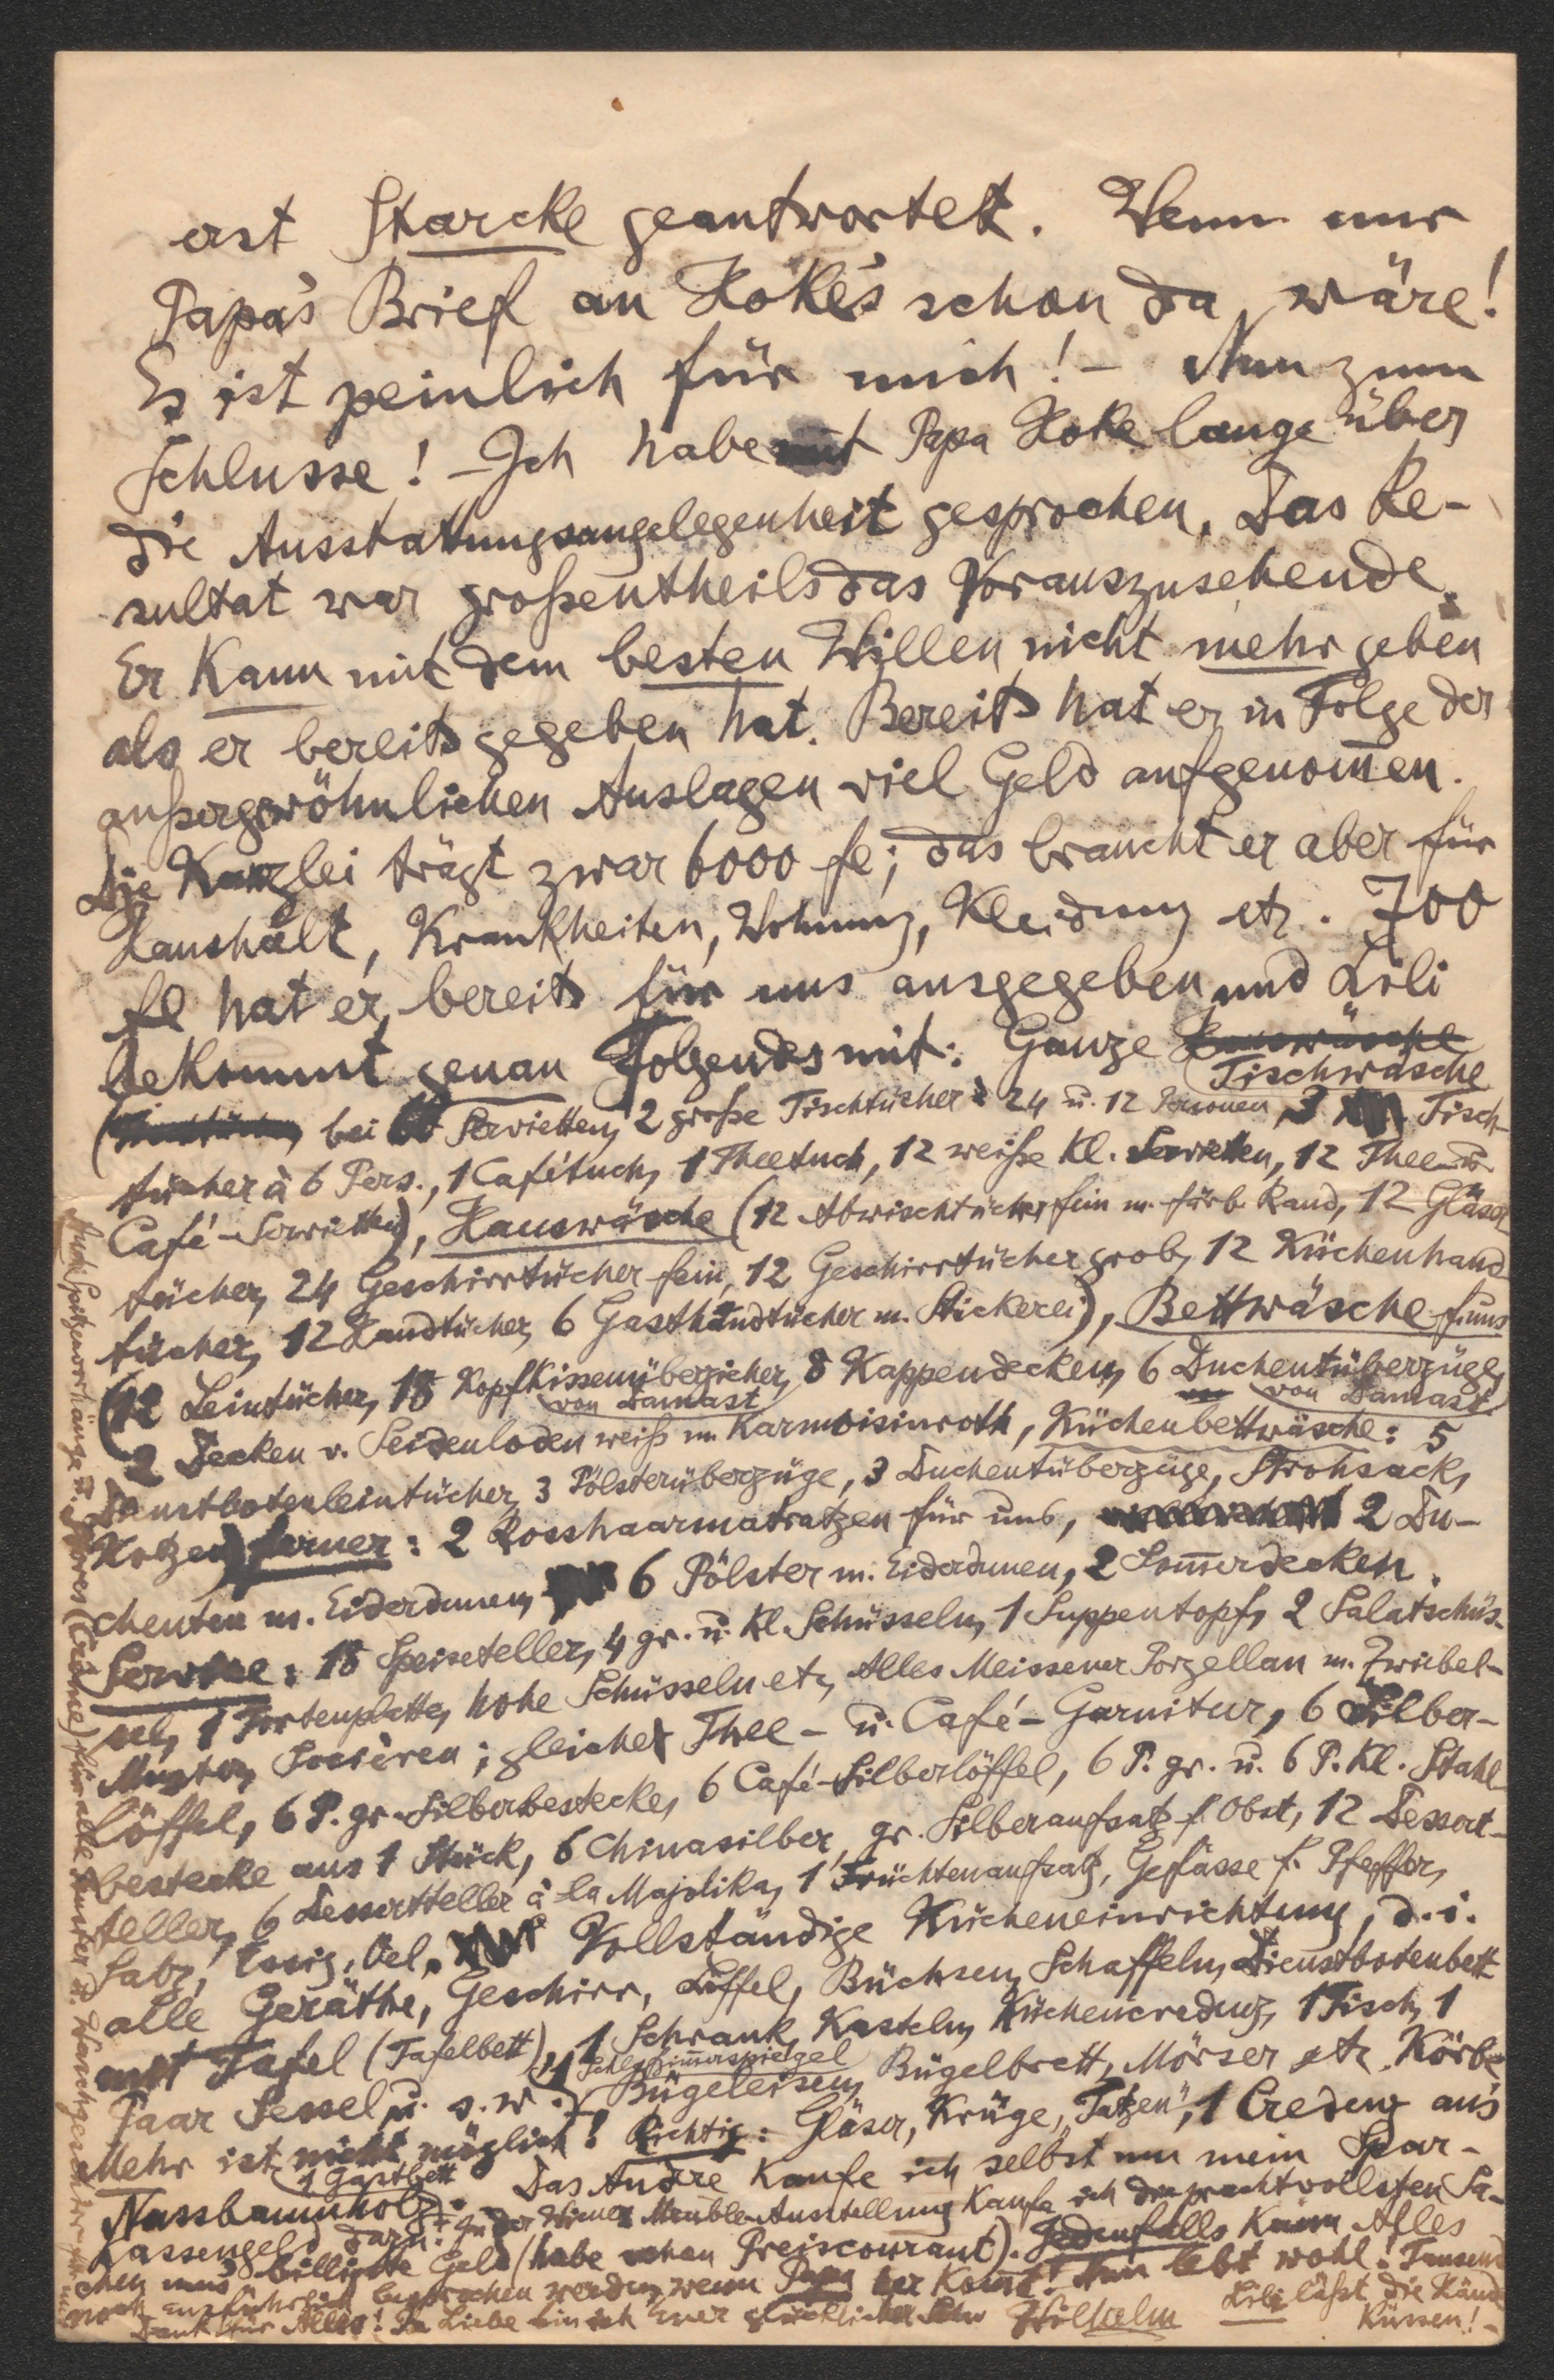 erst Starcke geantwortet. Wenn nur
Papa's Brief an Hoke's schon da wäre!
Es ist peinlich für mich! - Nun zum
Schlusse! - Ich habe mit Papa Hoke lange über
die Ausstattungsangelegenheit gesprochen. Das Re-
sultat war großentheils das Vorauszusehende.
Er kann mit dem besten Willen nicht mehr geben
als er bereits gegeben hat. Bereits hat er in Folge der
außergewöhnlichen Auslagen viel Geld aufgenom̄en.
Die Kanzlei trägt zwar 6000 fl; das braucht er aber für
Haushalt, Krankheiten, Wohnung, Kleidung etz. 700
fl hat er bereits für uns ausgegeben und Lili
bekommt genau Folgendes mit: Ganze Hauswäsche
Tischwäsche
( bei Servietten, 2 große Tischtücher à 24 u. 12 Personen, 3 Tisch-
tücher à 6 Pers., 1 Cafétuch, 1 Theetuch, 12 weiße kl. Servietten, 12 Thee- u.
Café-Servietten), Hauswäsche (12 Abwischtücher fein m. färb. Rand, 12 Gläser-
tücher, 24 Geschirrtücher fein, 12 Geschirrtücher grob, 12 Küchenhand-
tücher, 12 Handtücher, 6 Gasthandtücher m. Stickerei), Bettwäsche f. uns
(12 Leintücher, 18 Kopfkissenüberzieher, 8 Kappendecken, 6 Duchentüberzüge,
von Damast von Damast
2 Decken v. Seidenloden weiß m. Karmoisinroth, Küchenbettwäsche: 5
Dienstbotenleintücher, 3 Pölsterüberzüge, 3 Duchentüberzüge, Strohsack,
Kotzen) ferner: 2 Rosshaarmatratzen für uns, 2 Du-
chenten m. Eiderdunen, 6 Pölster m. Eiderdunen, 2 Som̄erdecken.
Service: 18 Speiseteller, 4 gr. u. kl. Schüsseln, 1 Suppentopf, 2 Salatschüs-
sel, 1 Tortenplatte, hohe Schüsseln etz, Alles Meissener Porzellan m. Zwiebel-
Muster, Socièren; gleiche Thee- u. Café-Garnitur, 6 Silber-
löffel, 6 P. gr. Silberbestecke, 6 Café-Silberlöffel, 6 P. gr. u. 6 P. kl. Stahl-
bestecke aus 1 Stück, 6 Chinasilber, gr. Silberaufsatz f. Obst, 12 Dessert-
teller, 6 Dessertteller à la Majolika, 1 Früchtenaufsatz, Gefässe f. Pfeffer,
Salz, Essig, Oel. Vollständige Kücheneinrichtung, d. i.
alle Geräthe, Geschirr, Löffel, Büchsen, Schaffeln, Dienstbotenbett
mit Tafel (Tafelbett), 1 Schrank, Kasteln, Küchencredenz, 1 Tisch, 1
Paar Sessel u. s. w. 1 Schlafzimmerspiegel Bügeleisen, Bügelbrett, Mörser etz. Körbe
Mehr ist nicht möglich! Richtig: Gläser, Krüge, "Tatzen", 1 Credenz aus
Nussbaumholz, 1 Gastbett. Das Andre kaufe ich selbst um mein Spar-
kassengeld dazu. In der Wiener Meuble-Ausstellung kaufe ich die prachtvollsten Sa-
chen um's billigste Geld (habe schon Preiscourant). Jedenfalls kann Alles
noch ausführlich besprochen werden, wenn Papa her kommt! Nun lebt wohl! Tausend
Dank für Alles! In Liebe bin ich Euer glücklicher Sohn Wilhelm
Lili läßt die Hände
küssen! -
Auch Spitzenvorhänge u. Stores (Crême) für alle Fenster u.